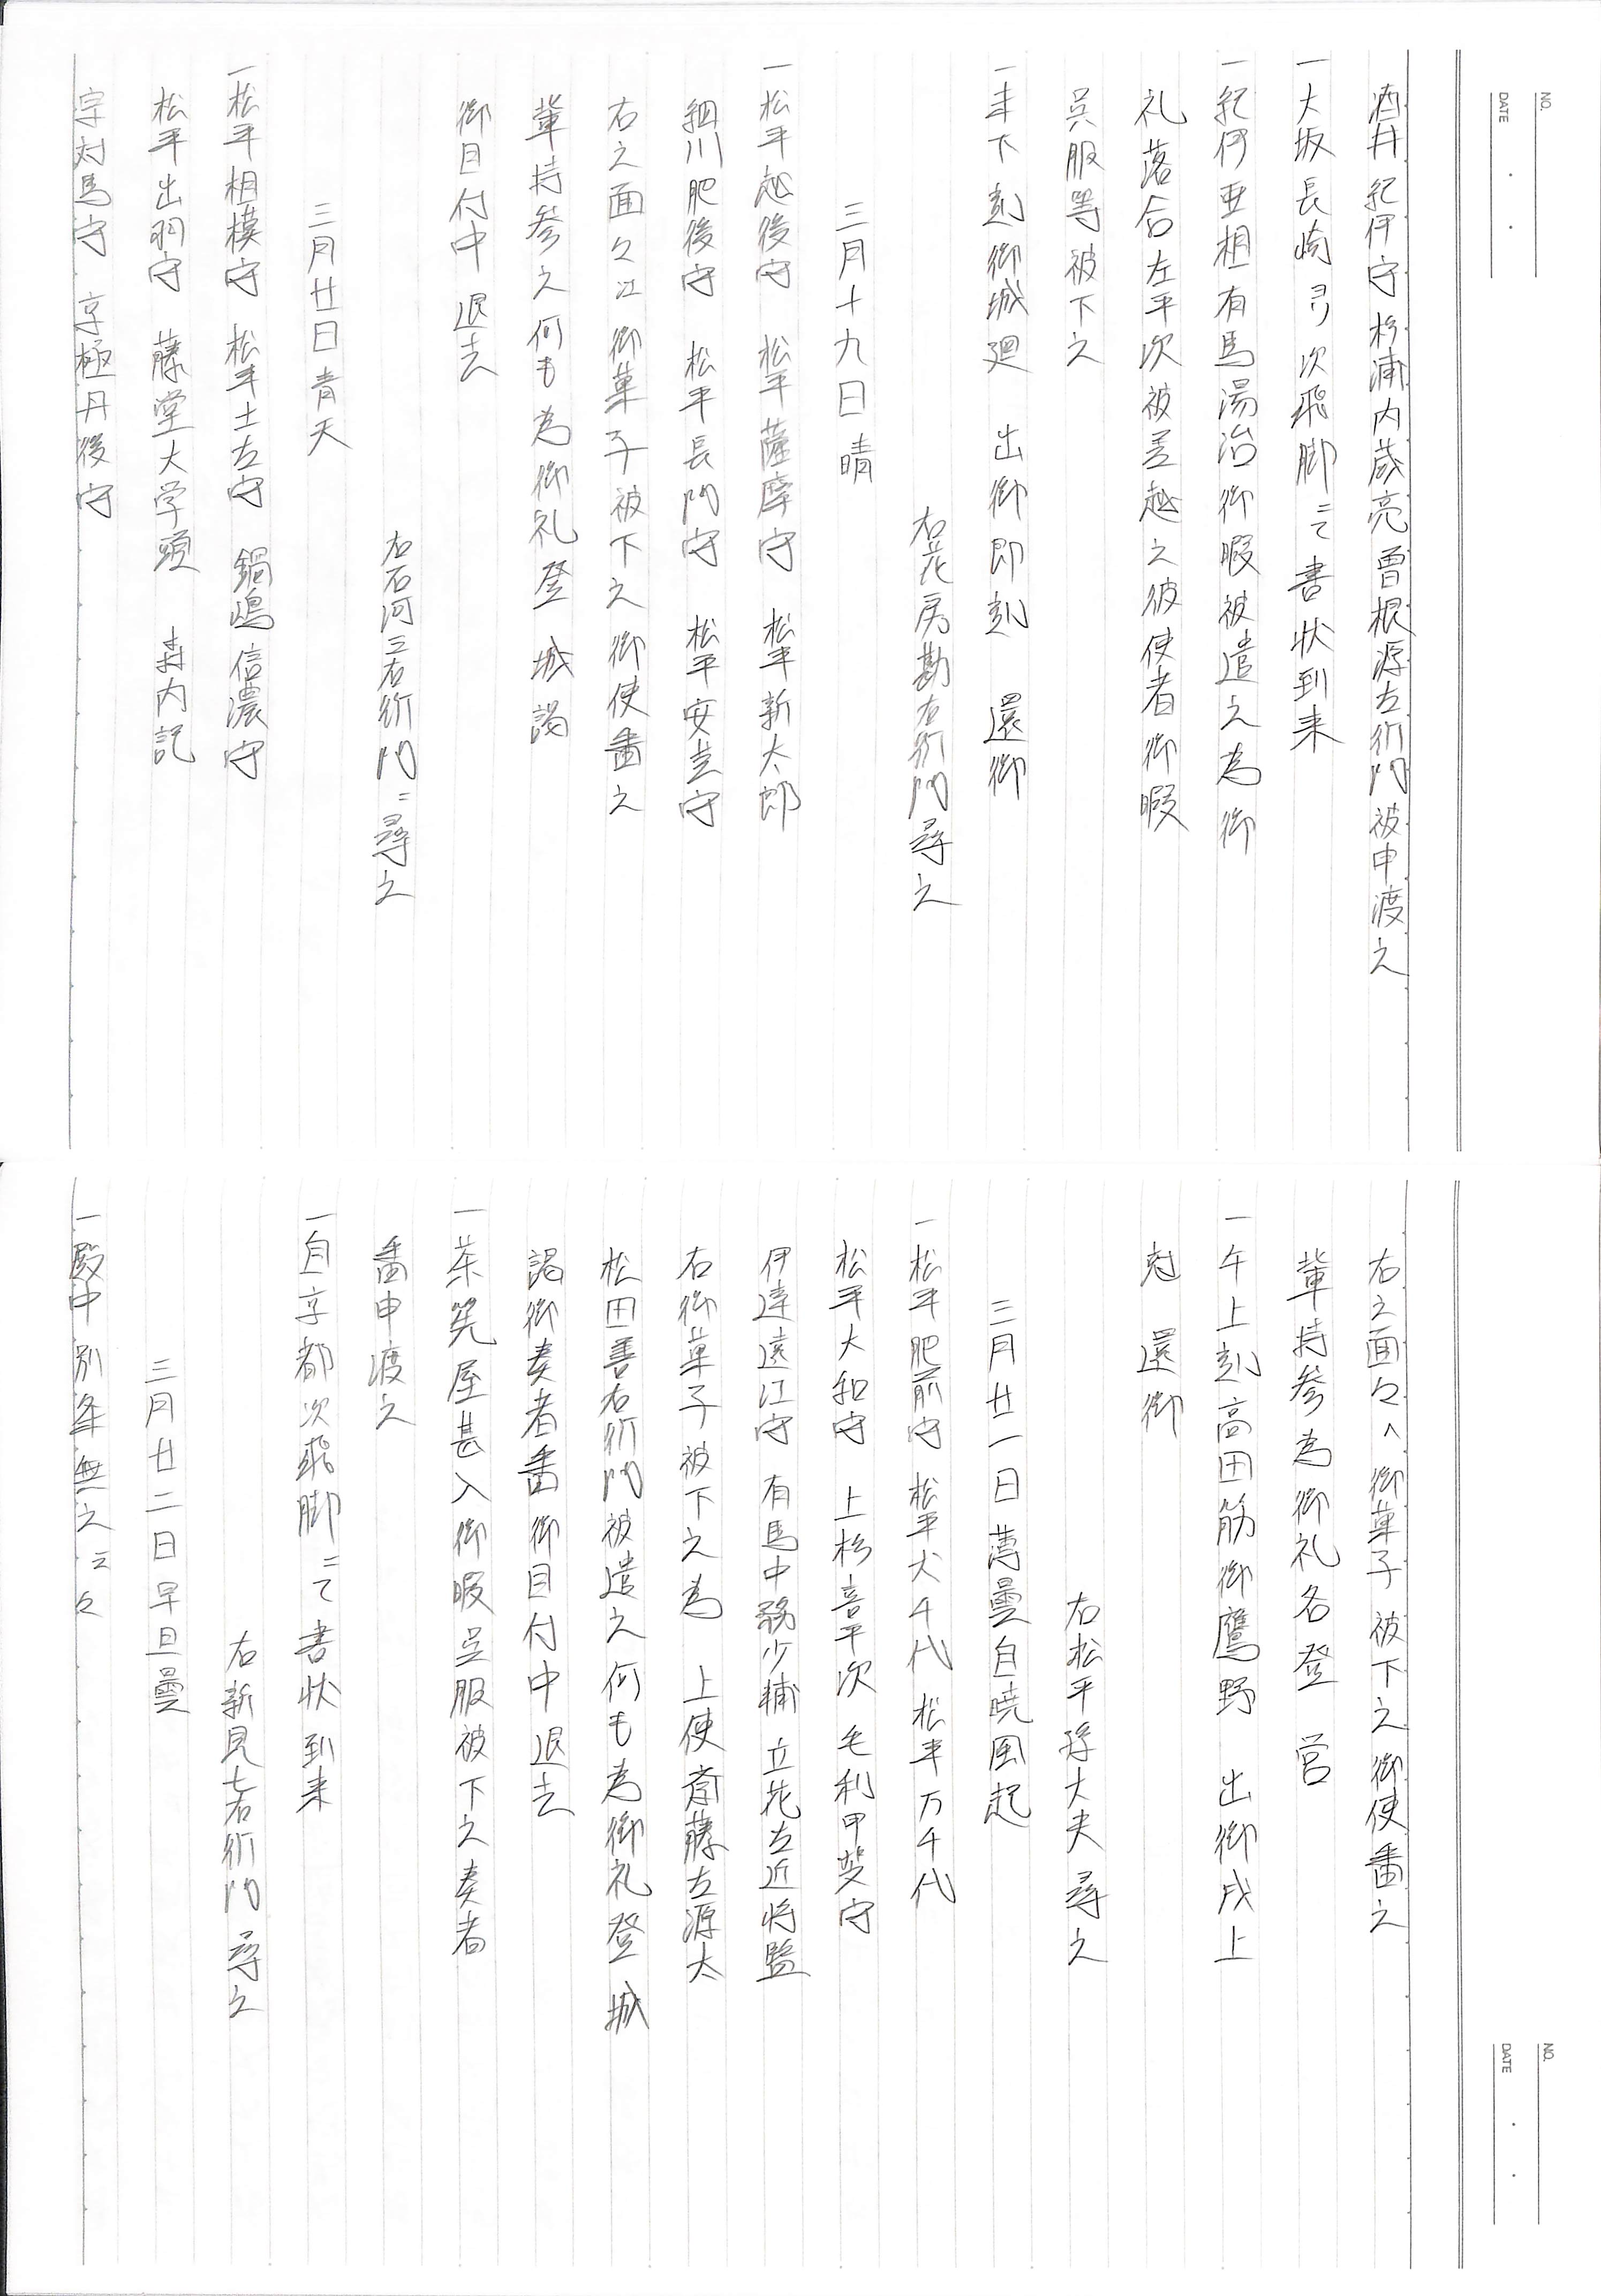 酒井紀伊守杉浦内蔵亮曽根源左衛門被申渡之
一大坂長崎ゟ次飛脚ニて書状到来
一紀伊亜相有馬湯治御暇被遣之為御
礼落合左平次被差越之彼使者御暇
呉服等被下之
一未下刻御城廻 出御即刻 還御
右花房勘右衛門尋之
三月十九日晴
一松平越後守 松平薩摩守 松平新太郎
細川肥後守 松平長門守 松平安芸守
右之面々江御菓子被下之御使番之
輩持参之何も為御礼登 城謁
御目付中退去
右石河三右衛門ニ尋之
三月廿日青天
一松平相模守 松平土左守 鍋嶋信濃守
松平出羽守 藤堂大学頭 森内記
宗対馬守 京極丹後守
右之面々へ御菓子被下之御使番之
輩持参為御礼各登 営
一午上刻高田筋御鷹野 出御戌上
刻 還御
右松平孫大夫尋之
三月廿一日薄曇自暁風起
一松平肥前守 松平犬千代 松平万千代
松平大和守 上杉喜平次 毛利甲斐守
伊達遠江守 有馬中務少輔 立花左近将監
右御菓子被下之為 上使斎藤左源太
松田善右衛門被遣之何も為御礼登 城
謁御奏者番御目付中退去
一茶筅屋甚入御暇呉服被下之奏者
番申渡之
一自京都次飛脚ニて書状到来
右新見七右衛門尋之
三月廿二日早旦曇
一殿中別条無之云々
NO.
DATE ・ ・
NO.
DATE ・ ・